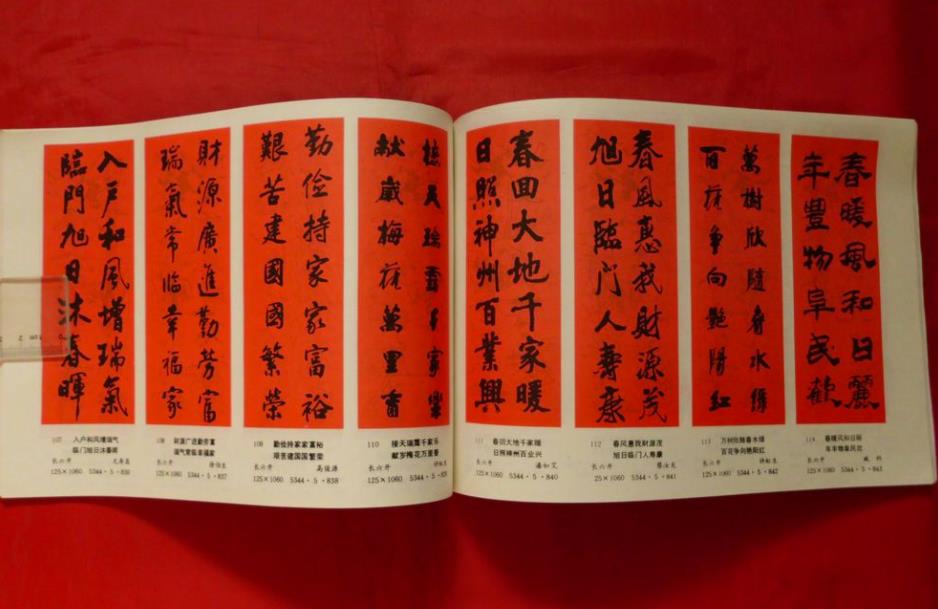 入户和风增瑞气
臨門旭日沐春暉
107 入户和风增瑞气
临门旭日沐春晖
长六开
125×1060 5344·5·836
財源廣進勤劳富
瑞氣常临幸福家
108 财源广进勤劳富
瑞气常临幸福家
长六开
125×1060 5344·5·837
勤俭持家家富裕
艱苦建國國繁荣
109 勤俭持家家富裕
艰苦建国国繁荣
长六开
125×1060 5344·5·838
接天瑞霞千家樂
献歲梅花萬里香
110 接天瑞霞千家乐
献岁梅花万里香
长六开
125×1060 5344·5·839
春回大地千家暖
日照神州百業興
111 春回大地千家暖
日照神州百业兴
长六开 潘如艾
125×1060 5344·5·840
春風惠我財源茂
旭日臨门人壽康
112 春风惠我财源茂
旭日临门人寿康
长六开
125×1060 5344·5·841
萬樹欣隨春水绿
百花争向艶陽红
113 万树欣随春水绿
百花争向艳阳红
长六开
125×1060 5344·5·842
春暖風和日麗
年豐物阜民歡
114 春暖风和日丽
年丰物阜民欢
长六开
125×1060 5344·5·843